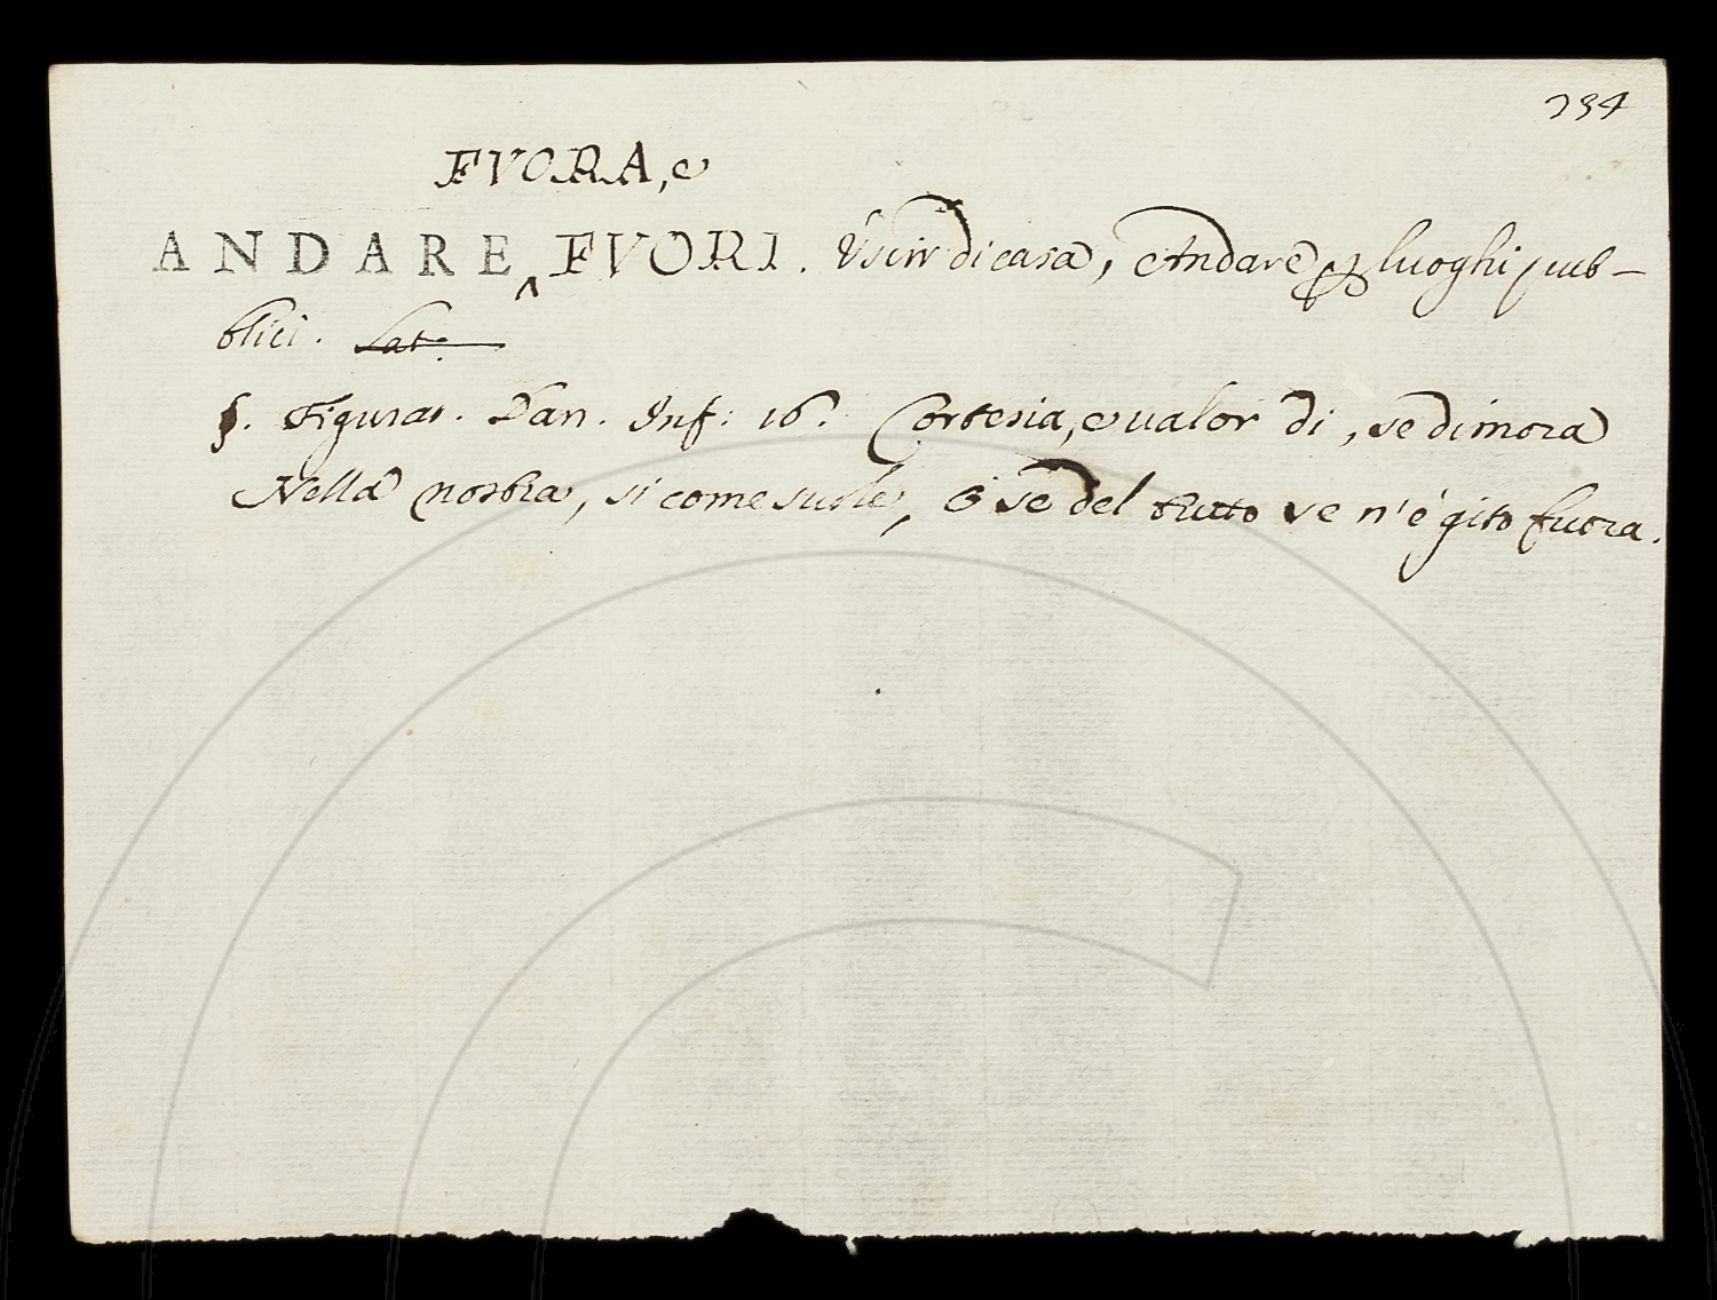 234
FVORA, e
ANDARE FVORI. Uscir di casa, Andare p luoghi pub-
blici. Lat:
§. Figurat. Dan. Inf: 16. Cortesia, e valor di, se dimora
Nella nostra, si come suole, O se del tutto se n'è gito fuora.